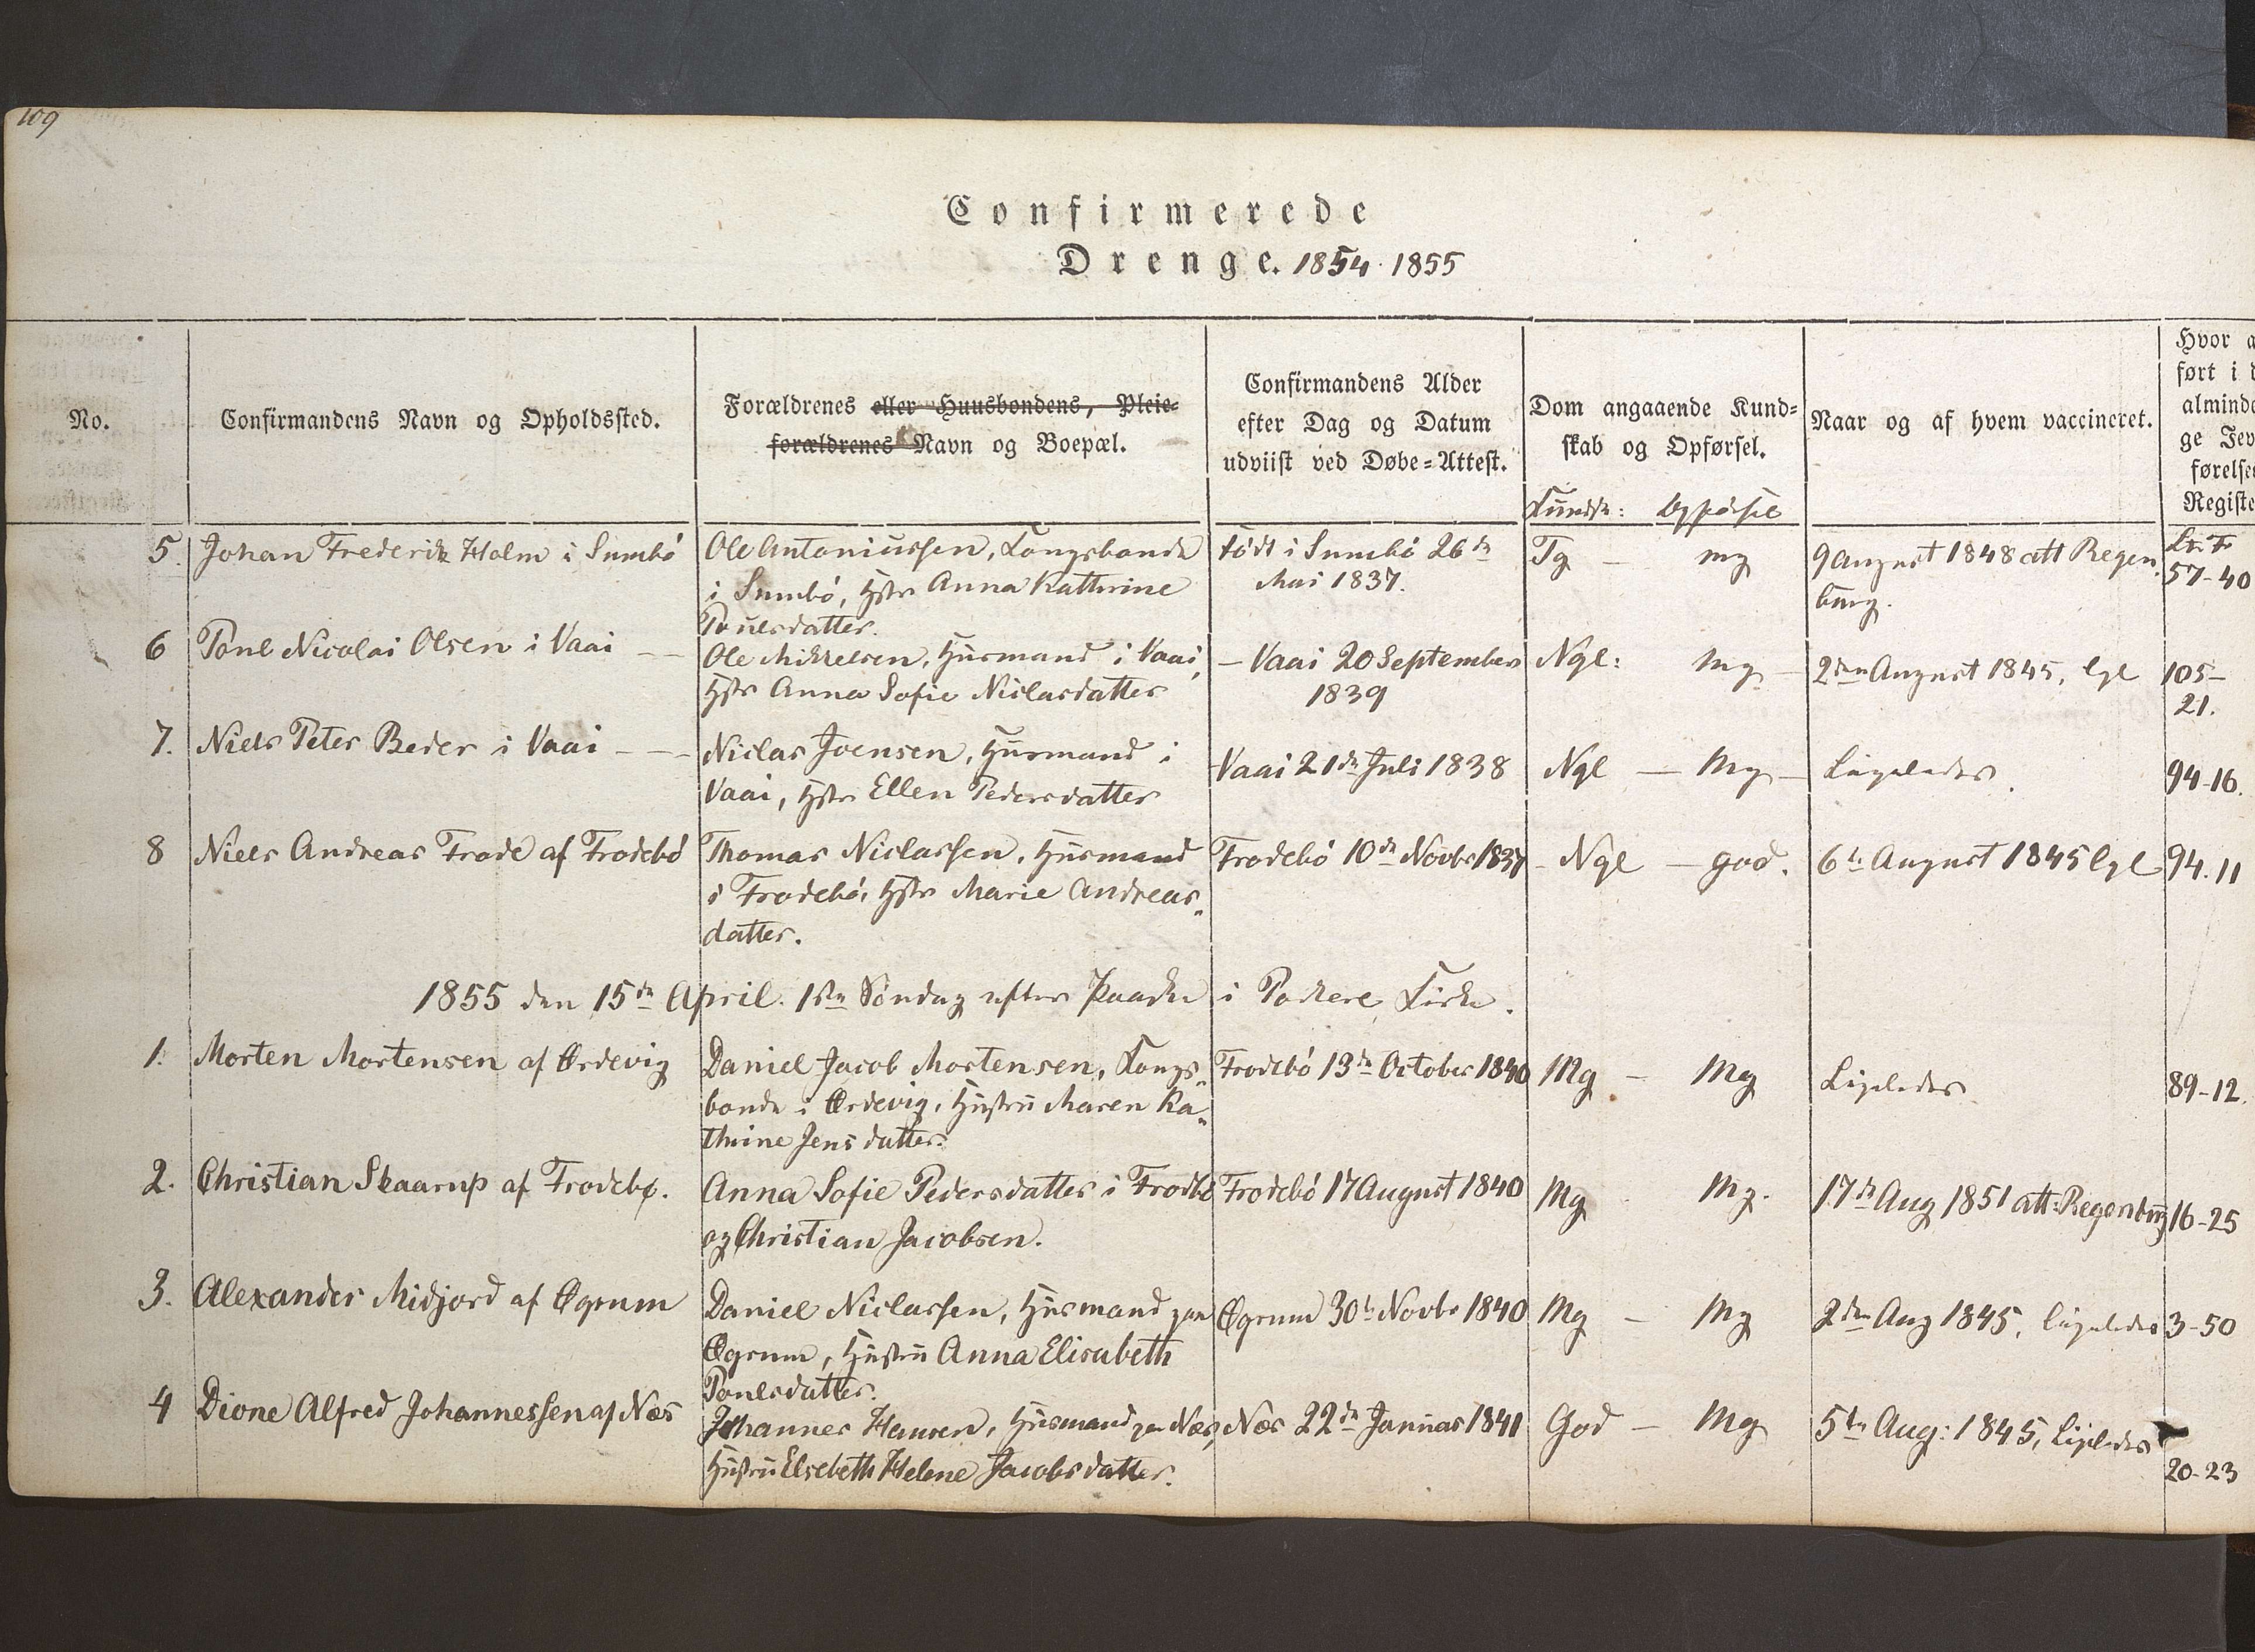 109
Confirmerede
Drenge. 1854 1855
No.
Confirmandens Navn og Opholdssted.
Forældrenes eller Huusbondens, Pleie-
forældrenes Navn og Boepæl.
Confirmandens Alder
efter Dag og Datum
udviist ved Døbe-Attest.
Dom angaaende Kund-
skab og Opførsel.
Kundsk: Opførsel
Naar og af hvem vaccineret.
Hvor a
ført i d
alminde
ge Jev
førelse
Registe
5. Johan Frederik Holm i Sumbö
Ole Antoniussen, Kongsbonde
i Sumbö, Hstr Anna Kathrine
Poulsdatter.
född i Sumbö 26de
Mai 1837.
Tg - mg
9 august 1848 att Regen
burg.
57-40
6 Poul Nicolai Olsen i Vaai - -
Ole Mikkelsen, Husmand i Vaai,
Hstr Anna Sofie Niclasdatter
- Vaai 20 September
1839
Ngl: mg -
2den August 1845, lgl
105-
21.
7. Niels Peter Beder i Vaai - -
Niclas Joensen, Husmand i
Vaai, Hstr Ellen Pedersdatter
Vaai 21de Juli 1838
Ngl - Mg -
Ligeledes.
94-16.
8 Niels Andreas Frode af Frodebö
Thomas Niclassen, Husmand
i Frodebö, Hstr Marie Andreas-
datter.
Frodebö 10de Novbr 1837
- Ngl - god.
6te August 1845 lgl
94.11
1855 den 15de April. 1ste Söndag efter Paaske i Porkere Kirke.
1. Morten Mortensen af Ördevig
Daniel Jacob Mortensen, Kongs-
bonde i Ördevig, Hustru Maren Ka-
thrine Jensdatter.
Frodebö 13de October 1840
Mg - Mg
Ligeledes
89-12.
2. Christian Skaarup af Frodebø.
Anna Sofie Pedersdatter i Frodbö
og Christian Jacobsen.
Frodebö 17 August 1840
Mg Mg.
17de Aug 1851 att: Regenburg
16-25
3. Alexander Midjord af Øgrum
Daniel Niclassen, Husmand paa
Øgrum, Hustru Anna Elisabeth
Poulsdatter.
Øgrum 30te Novbr 1840
Mg - Mg
2den Aug 1845, ligeledes
3-50
4 Dione Alfred Johannessen af Næs
Johannes Hansen, Husmand paa Næs,
Hustru Elsebeth Helene Jacobsdatter.
Næs 22de Januar 1841
God - Mg
5te Aug: 1845, Ligeledes
20-23